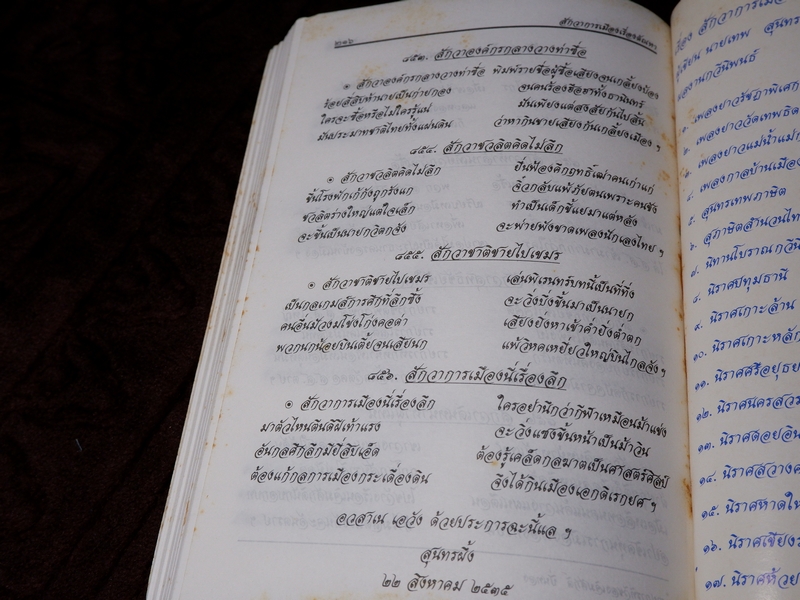 ๒๑๖ สักวาการเมืองเรื่องฉันทา
๘๕๓. สักวาองค์กรกลางวางท่าซื่อ
๏ สักวาองค์กรกลางวางท่าซื่อ พิมพ์รายชื่อผู้ซื้อเสียงจนเกลี้ยงบ้อง
ร้อยสี่สิบห้านายเป็นก่ายกอง จนคนร้องฮือฮาทั้งธานินทร์
ใครจะซื้อหรือไม่ใครรู้แน่ มันเพียงแต่สงสัยกันไปสิ้น
มันประมาทชาติไทยทั้งแผ่นดิน ว่าหากินขายเสียงกันเกลี้ยงเมือง ฯ
๘๕๔. สักวาชวลิตคิดไม่ลึก
๏ สักวาชวลิตคิดไม่ลึก ยื่นฟ้องคึกฤทธิ์เฒ่าคนเก่าแก่
ขึ้นโรงพักเก้กังถูกรังแก จิ๋วกลับแพ้ภัยตนเพราะคนชัง
ชวลิตร่างใหญ่แต่ใจเล็ก ทำเป็นเด็กขี้แยมาแต่หลัง
จะขึ้นเป็นนายกวิตกจัง จะพ่ายพังขาดเพลงนักเลงไทย ฯ
๘๕๕. สักวาชาติชายไปเขมร
๏ สักวาชาติชายไปเขมร เล่นพิเรนทร์บทนี้เป็นที่ทึ่ง
เป็นกลเกมส์การศึกที่ลึกซึ้ง จะวิ่งปึ่งขึ้นมาเป็นนายก
คนอื่นมัวงมโข่งโก่งคอด่า เสียงยิ่งหาเข้าค่ำยิ่งต่ำตก
พวกนกน้อยบินเตี้ยจนเสียนก แพ้วิหคเหยี่ยวใหญ่บินไกลจัง ฯ
๘๕๖. สักวาการเมืองนี่เรื่องลึก
๏ สักวาการเมืองนี่เรื่องลึก ใครอย่านึกว่ากีฬาเหมือนม้าแข่ง
มาตัวไหนตีนดีฝีเท้าแรง จะวิ่งแซงขึ้นหน้าเป็นม้าวิน
อันกลศึกลึกมียี่สิบเอ็ด ต้องรู้เคล็ดกลฆาตเป็นศาสตร์ศิลป์
ต้องแก้กลการเมืองกระเดื่องดิน จึงได้กินเมืองเอกดิเรกยศ ฯ
อวสาเน เอวัง ด้วยประการฉะนี้แล ฯ
สุนทรผึ้ง
๒๒ สิงหาคม ๒๕๓๕
เรื่อง สักวาการเมือ
ผู้เขียน นายเทพ สุนทร
ผลงานกวีนิพนธ์
๑. เพลงยาวรัชฎาภิเศก
๒. เพลงยาววัดเทพธิด
๓. เพลงยาวแม่น้ำแม่ก
๔. เพลงกาลบ้านเมือง
๕. สุนทรเทพภาษิต
๖. สุภาษิตสำนวนไท
๗. นิทานโบราณกวีนิ
๘. นิราศปทุมธานี
๙. นิราศเกาะล้าน
๑๐. นิราศเกาะหลัก
๑๑. นิราศศรีอยุธยา
๑๒. นิราศนครสวร
๑๓. นิราศดอยอิน
๑๔. นิราศสวางค
๑๕. นิราศหาดให
๑๖. นิราศเชียงร
๑๗. นิราศห้วย